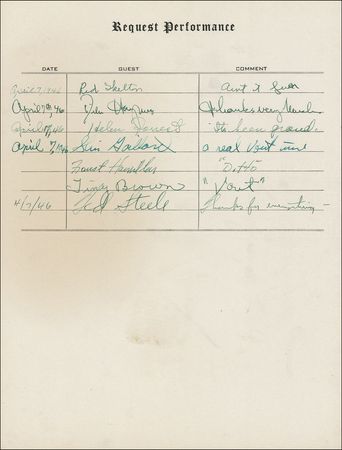 Request Performance
DATE GUEST COMMENT
April 7, 1946 Red Skelton Aint I
April 7th, 46 Dick Haymes Thanks very much
April 7, 46 Helen Forrest It's been grand
April 7, 1946 Slim Gaillard a real Vout time
"Ditto"
Tiny Brown "Vout"
4/7/46 Ted Steele Thanks for everything –